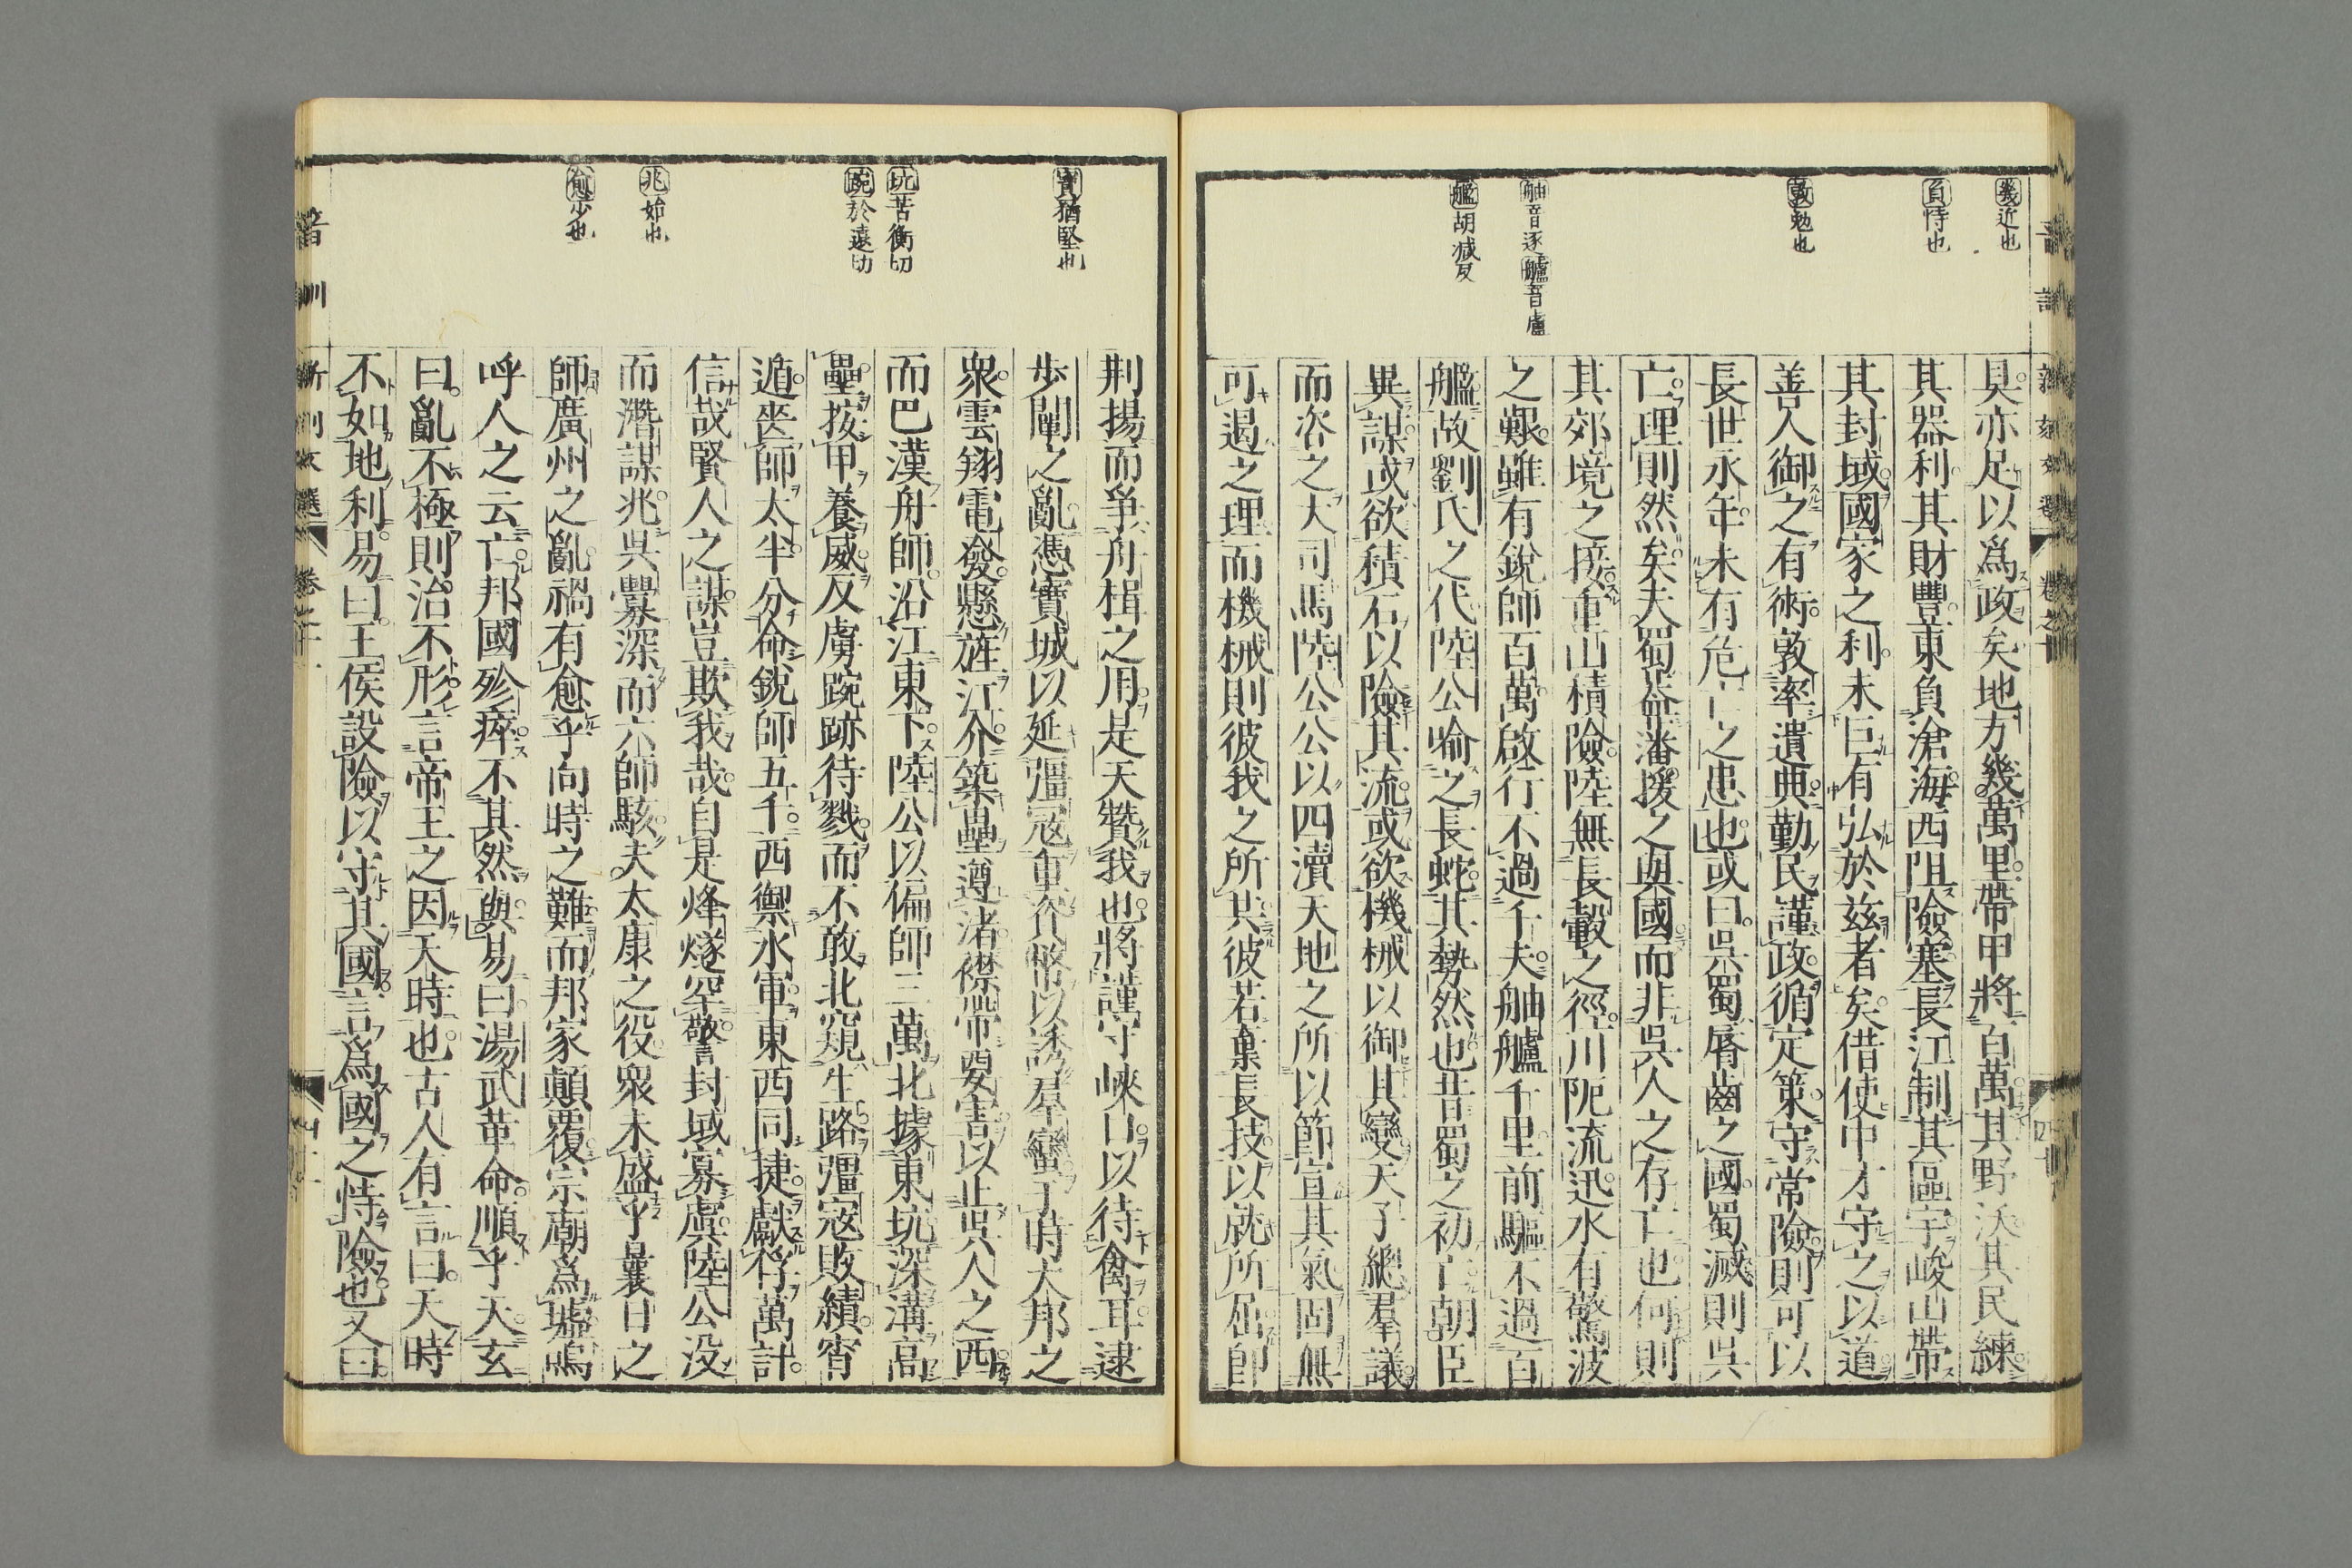 幾近也
負恃也
敦勉也
舳音逐艫音盧
艦胡減反
具亦足以爲政矣地方幾萬里帶甲將百萬其野沃其民練
其器利其財豐東負滄海西阻險塞長江制其區宇峻山帶
其封域國家之利未巨有弘於茲者矣借使中才守之以道
善人御之有術敦率遺典勤民謹政循定策守常險則可以
長世永年未有危亡之患也或曰吳蜀脣齒之國蜀滅則吳
亡理則然矣夫蜀蓋藩援之與國而非吳人之存亡也何則
其郊境之接重山積險陸無長轂之徑川阨流迅水有驚波
之艱雖有銳師百萬啟行不過千夫舳艫千里前驅不過百
艦故劉氏之代陸公喻之長蛇其勢然也昔蜀之初亡朝臣
異謀或欲積石以險其流或欲機械以御其變天子總羣議
而咨之大司馬陸公公以四瀆天地之所以節宣其氣固無
可遏之理而機械則彼我之所共彼若棄長技以就所屈即
寶猶堅也
坑苦衡切
踠於遠切
兆始也
愈少也
荆揚而爭舟楫之用是天贊我也將謹守峽口以待禽耳逮
步闡之亂憑寶城以延彊寇重資幣以誘羣蠻于時大邦之
衆雲翔電發懸旌江介築壘遵渚襟帶要害以止吳人之西
而巴漢舟師沿江東下陸公以偏師三萬北據東坑深溝高
壘按甲養威反虜踠跡待戮而不敢北窺生路彊寇敗績宵
遁喪師太半分命銳師五千西禦水軍東西同捷獻俘萬計
信哉賢人之謀豈欺我哉自是烽燧罕警封域寡虞陸公没
而潛謀兆吳釁深而六師駭夫太康之役衆未盛乎曩日之
師廣州之亂禍有愈乎向時之難而邦家顛覆宗廟爲墟嗚
呼人之云亡邦國殄瘁不其然與易曰湯武革命順乎天玄
曰亂不極則治不形言帝王之因天時也古人有言曰天時
不如地利易曰王侯設險以守其國言爲國之恃險也又曰